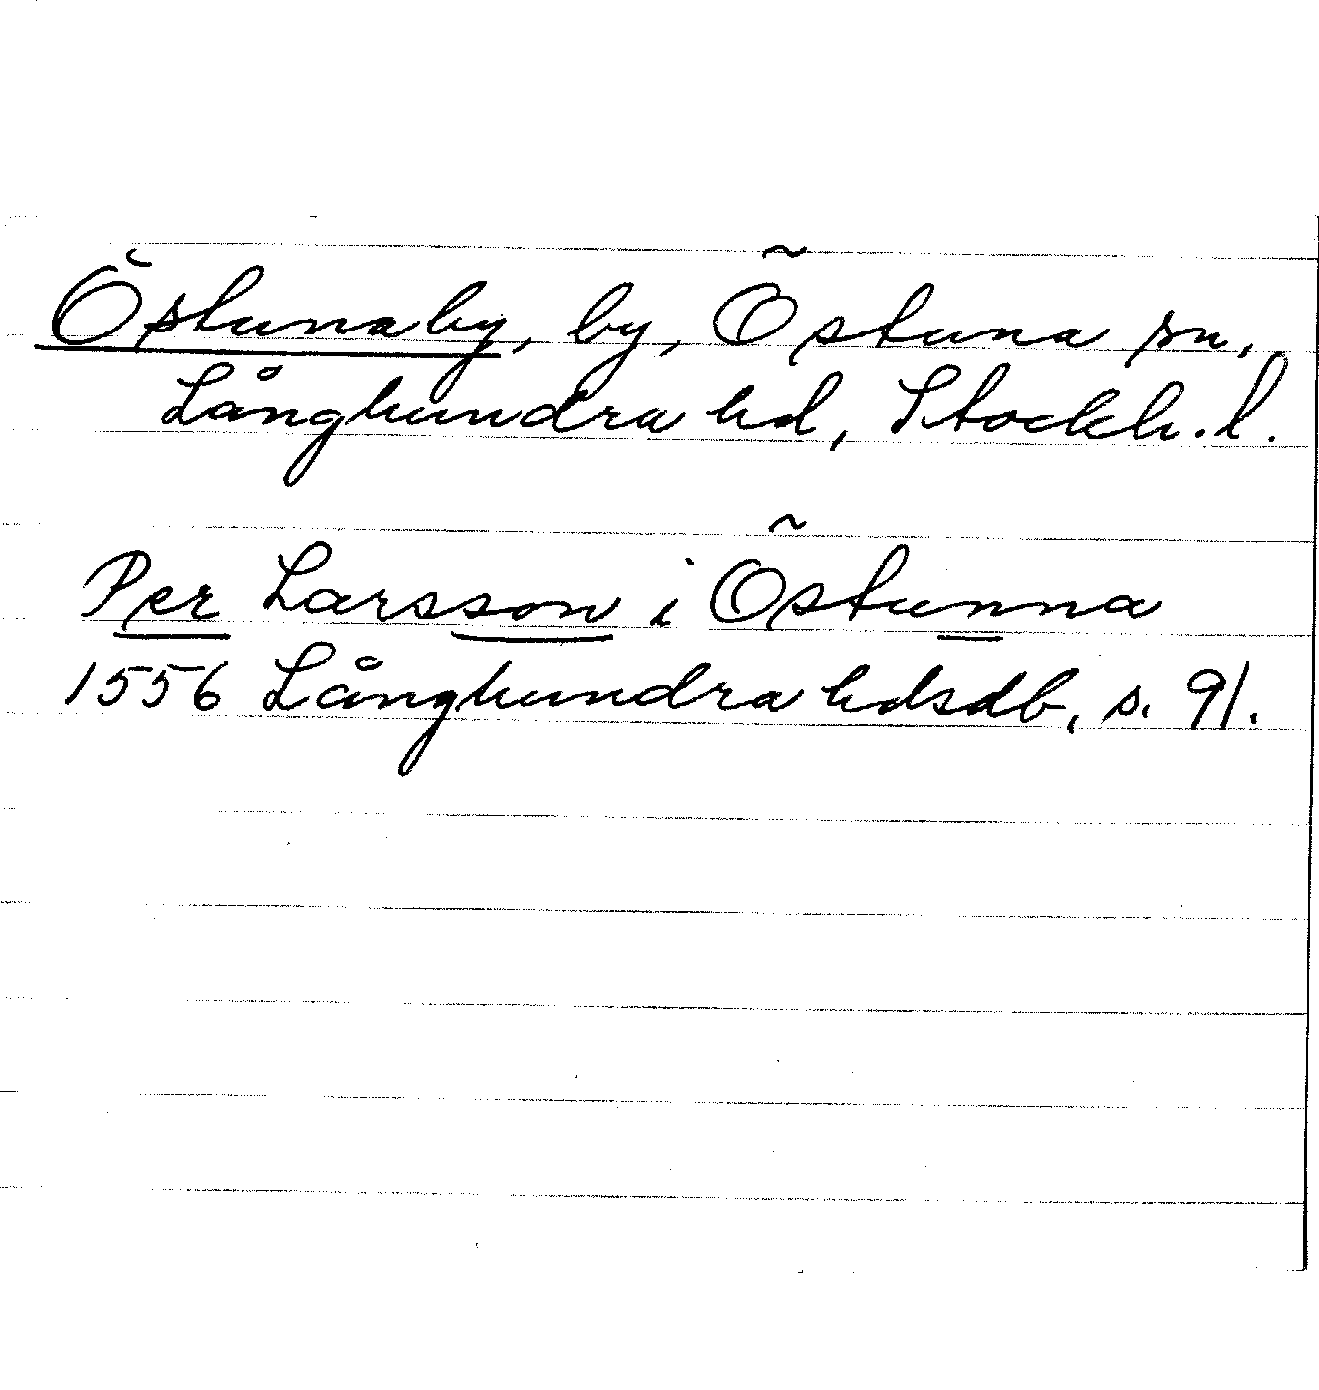 Östunaby, by, Östuna sn,
Långhundra hd, Stockh. l.
Per Larsson i Östunna
1556 Långhundra hdsdb, s. 91.